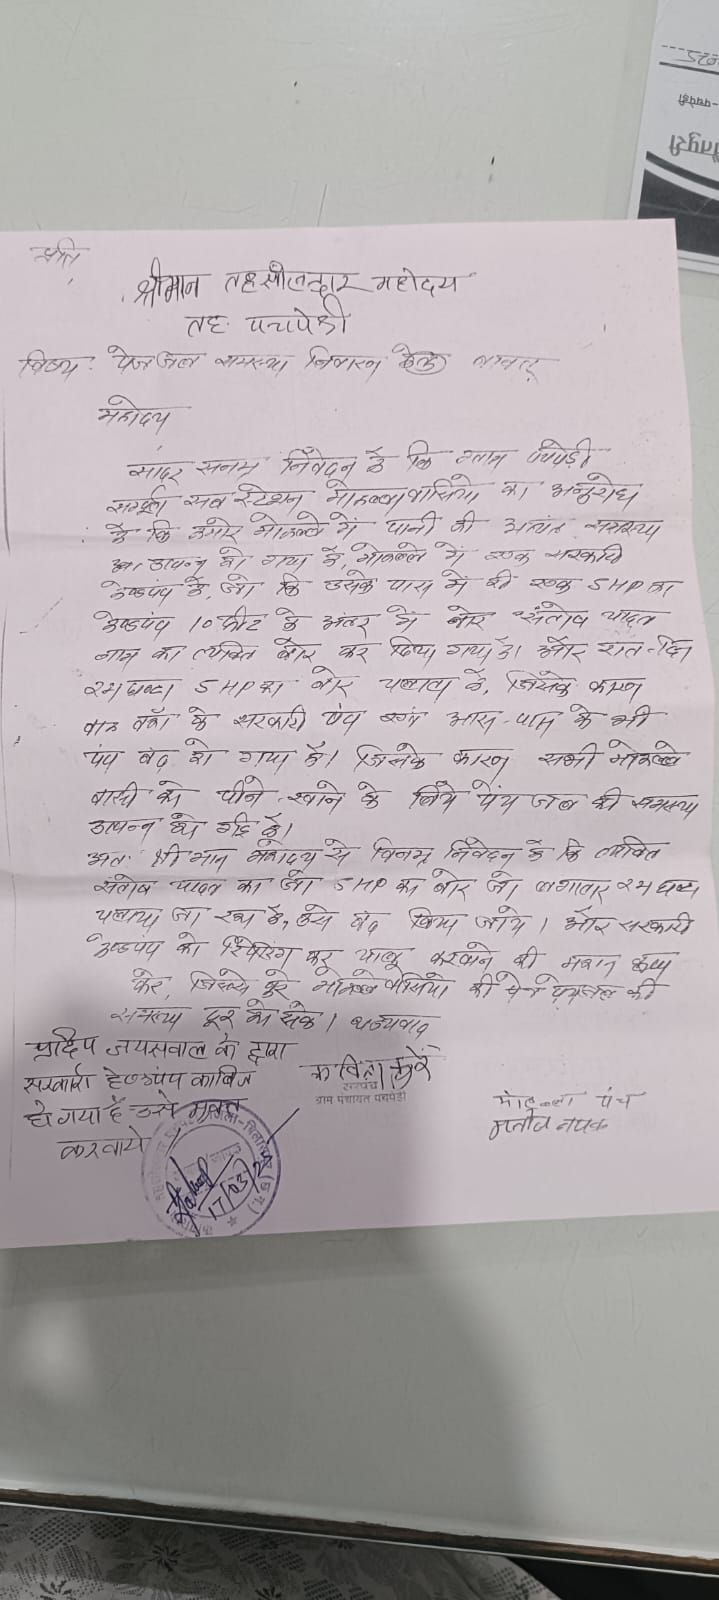 प्रति,
श्रीमान तहसीलदार महोदय
तह. पचपेडी
विषय: पेजजल समस्या निवारण बाबत्
महोदय
सादर सनम्र निवेदन है कि ग्राम पचपेडी
सम्पूर्ण सब स्टेशन मोहल्लावासियो का अनुरोध
है कि हमारे मोहल्ले में पानी की अत्यंत समस्या
उत्पन्न हो गया है, मोहल्ले में एक सरकारी
हेण्डपंप है, जो कि उसके पास में ही एक 5HP का
हेण्डपंप 10 फीट के अंतर में बोर संतोष यादव
नाम का व्यक्ति बोर कर दिया गया है। और रात-दिन
24 घण्टा 5HP का बोर चलाता है, जिसके कारण
के सरकारी पंप एवं आस-पास के भी
पंप बंद हो गया है। जिसके कारण सभी मोहल्ले
वासी को पीने-खाने के लिये पेय जल की समस्या
उत्पन्न हो गई है।
अतः श्रीमान महोदय से विनम्र निवेदन है कि व्यक्ति
संतोष यादव का जो 5HP का बोर जो लगातार 24 घण्टा
चलाया जा रहा है, उसे बंद किया जाये। और सरकारी
हेण्डपंप को कर चालू करवाने की महान कृपा
करे, जिससे पुरे मोहल्लेवासियो की पेयजल की
समस्या दूर हो सके। धन्यवाद
प्रदिप जयसवाल के द्वारा
सरकारी हेण्डपंप काबिज
हो गया है उसे मुक्त
करवाये
कविता कुर्रे
सरपंच
ग्राम पंचायत पचपेडी
मोहल्ला पंच
17/03/2